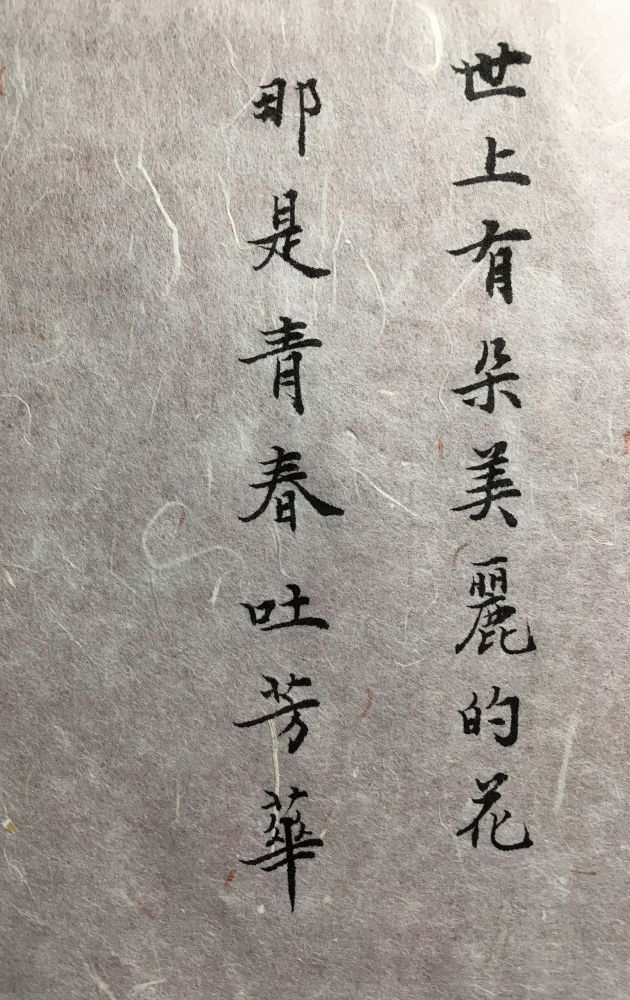 世上有朵美麗的花
那是青春吐芳華